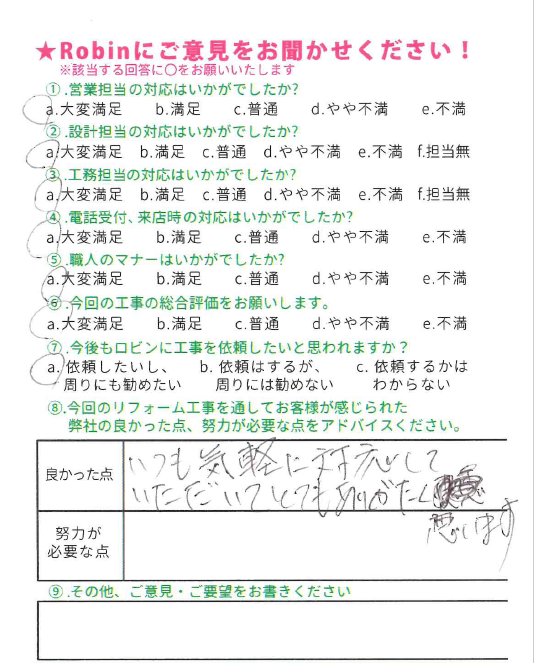 ★Robinにご意見をお聞かせください！
※該当する回答に〇をお願いいたします
①.営業担当の対応はいかがでしたか?
a.大変満足 b.満足 c.普通 d.やや不満 e.不満
②.設計担当の対応はいかがでしたか?
a.大変満足 b.満足 c.普通 d.やや不満 e.不満 f.担当無
③.工務担当の対応はいかがでしたか?
a.大変満足 b.満足 c.普通 d.やや不満 e.不満 f.担当無
④.電話受付、来店時の対応はいかがでしたか?
a.大変満足 b.満足 c.普通 d.やや不満 e.不満
⑤.職人のマナーはいかがでしたか?
a.大変満足 b.満足 c.普通 d.やや不満 e.不満
⑥.今回の工事の総合評価をお願いします。
a.大変満足 b.満足 c.普通 d.やや不満 e.不満
⑦.今後もロビンに工事を依頼したいと思われますか？
a. 依頼したいし、 b. 依頼はするが、 c. 依頼するかは
周りにも勧めたい 周りには勧めない わからない
⑧.今回のリフォーム工事を通してお客様が感じられた
弊社の良かった点、努力が必要な点をアドバイスください。
良かった点
いつも気軽に対応して
いただいてとてもありがたく
思います
努力が
必要な点
⑨.その他、ご意見・ご要望をお書きください